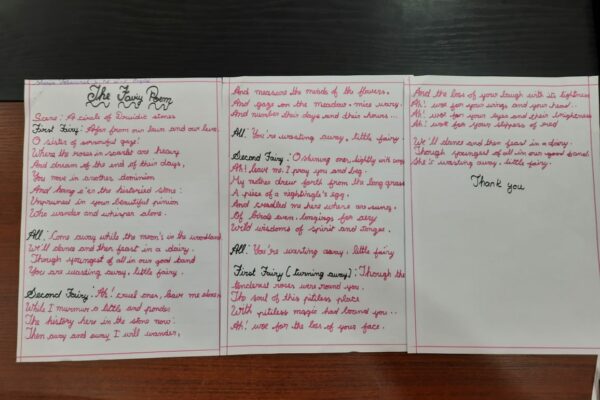 The Fairy Poem
Scene: A circle of Druidic stones
First Fairy: Afar from our lawn and our levee,
O sister of sorrowful gaze!
Where the roses in scarlet are heavy
And dream of the end of their days,
You move in another dominion
And hang o'er the historied stone:
Unpruned is your beautiful pinion
Who wander and whisper alone.
All: Come away while the moon's in the woodland
We'll dance and then feast in a dairy.
Though youngest of all in our good band
You are wasting away, little fairy.
Second Fairy: Ah! cruel ones, leave me alone
While I murmur a little and ponder
The history here in the stone now:
Then away and away I will wander,
And measure the minds of the flowers,
And gaze on the meadow-mice wary,
And number their days and their hours...
All: You're wasting away, little fairy.
Second Fairy: O shining ones, lightly with song
Ah! leave me, I pray you and beg.
My mother drew forth from the long grass
A piece of a nightingale's egg,
And cradled me here where are sung,
Of birds even, longings for aery
Wild wisdoms of spirit and tongue.
All: You're wasting away, little fairy
First Fairy (turning away): Though the
tenderest roses were round you.
The soul of this pitiless place
With pitiless magic had bound you...
Ah! woe for the loss of your face.
And the loss of your laugh with its lightness
Ah! woe for your wings and your head..
Ah! woe for your eyes and their brightness
Ah! woe for your slippers of red
We'll dance and then feast in a dairy.
Though youngest of all in our good band
She's wasting away, little fairy.
Thank you